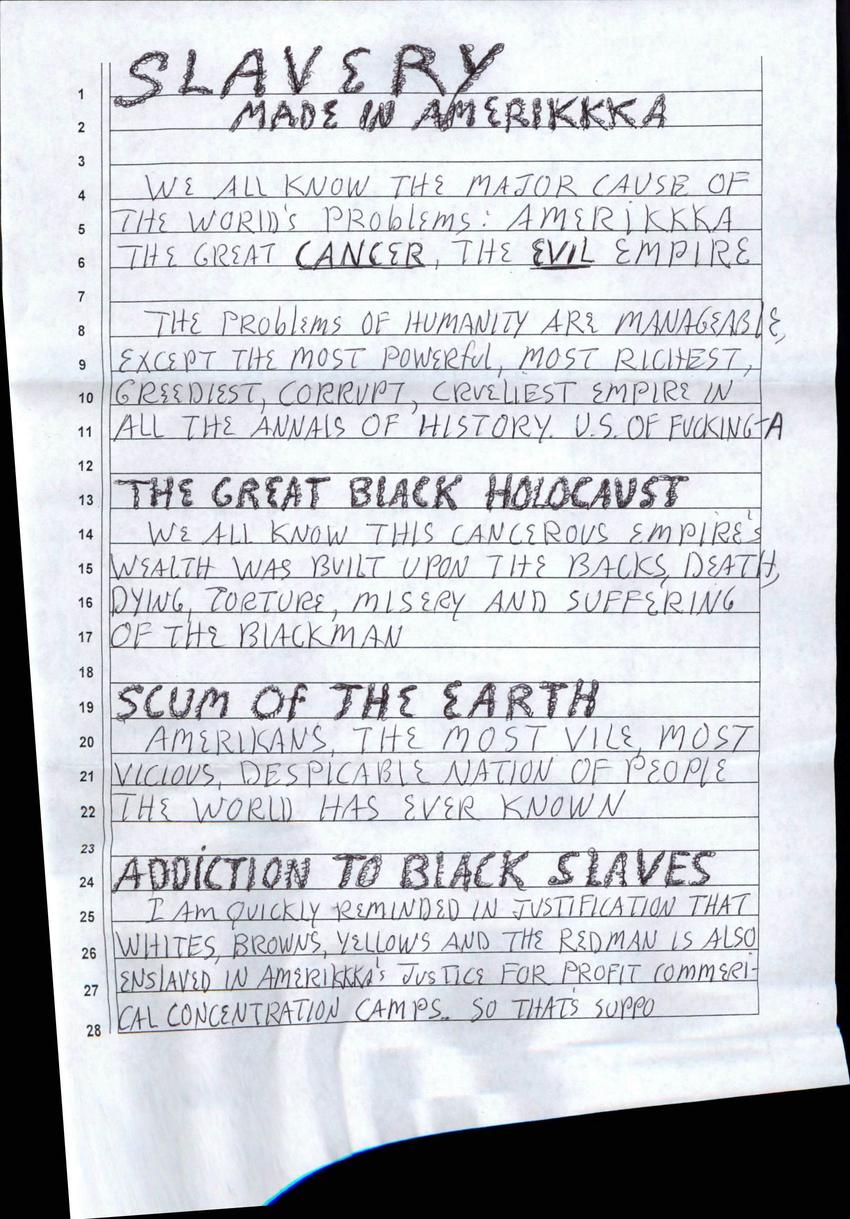 SLAVERY
1
MADE IN AMERIKKKA
2
3
WE ALL KNOW THE MAJOR CAUSE OF
4
THE WORLD'S PROBLEMS: AMERIKKKA
5
THE GREAT CANCER, THE EVIL EMPIRE
6
7
THE PROBLEMS OF HUMANITY ARE MANAGEABLE,
8
EXCEPT THE MOST POWERFUL, MOST RICHEST,
9
GREEDIEST, CORRUPT, CRUELIEST EMPIRE IN
10
ALL THE ANNALS OF HISTORY. U.S. OF FUCKING-A
11
12
THE GREAT BLACK HOLOCAUST
13
WE ALL KNOW THIS CANCEROUS EMPIRE'S
14
WEALTH WAS BUILT UPON THE BACKS, DEATH,
15
DYING, TORTURE, MISERY AND SUFFERING
16
OF THE BLACKMAN
17
18
SCUM OF THE EARTH
19
AMERIKANS, THE MOST VILE, MOST
20
VICIOUS, DESPICABLE NATION OF PEOPLE
21
THE WORLD HAS EVER KNOWN
22
23
ADDICTION TO BLACK SLAVES
24
I AM QUICKLY REMINDED IN JUSTIFICATION THAT
25
WHITES, BROWNS, YELLOWS AND THE REDMAN IS ALSO
26
ENSLAVED IN AMERIKKKA'S JUSTICE FOR PROFIT COMMERI-
27
CAL CONCENTRATION CAMPS. SO THAT'S SUPPO
28